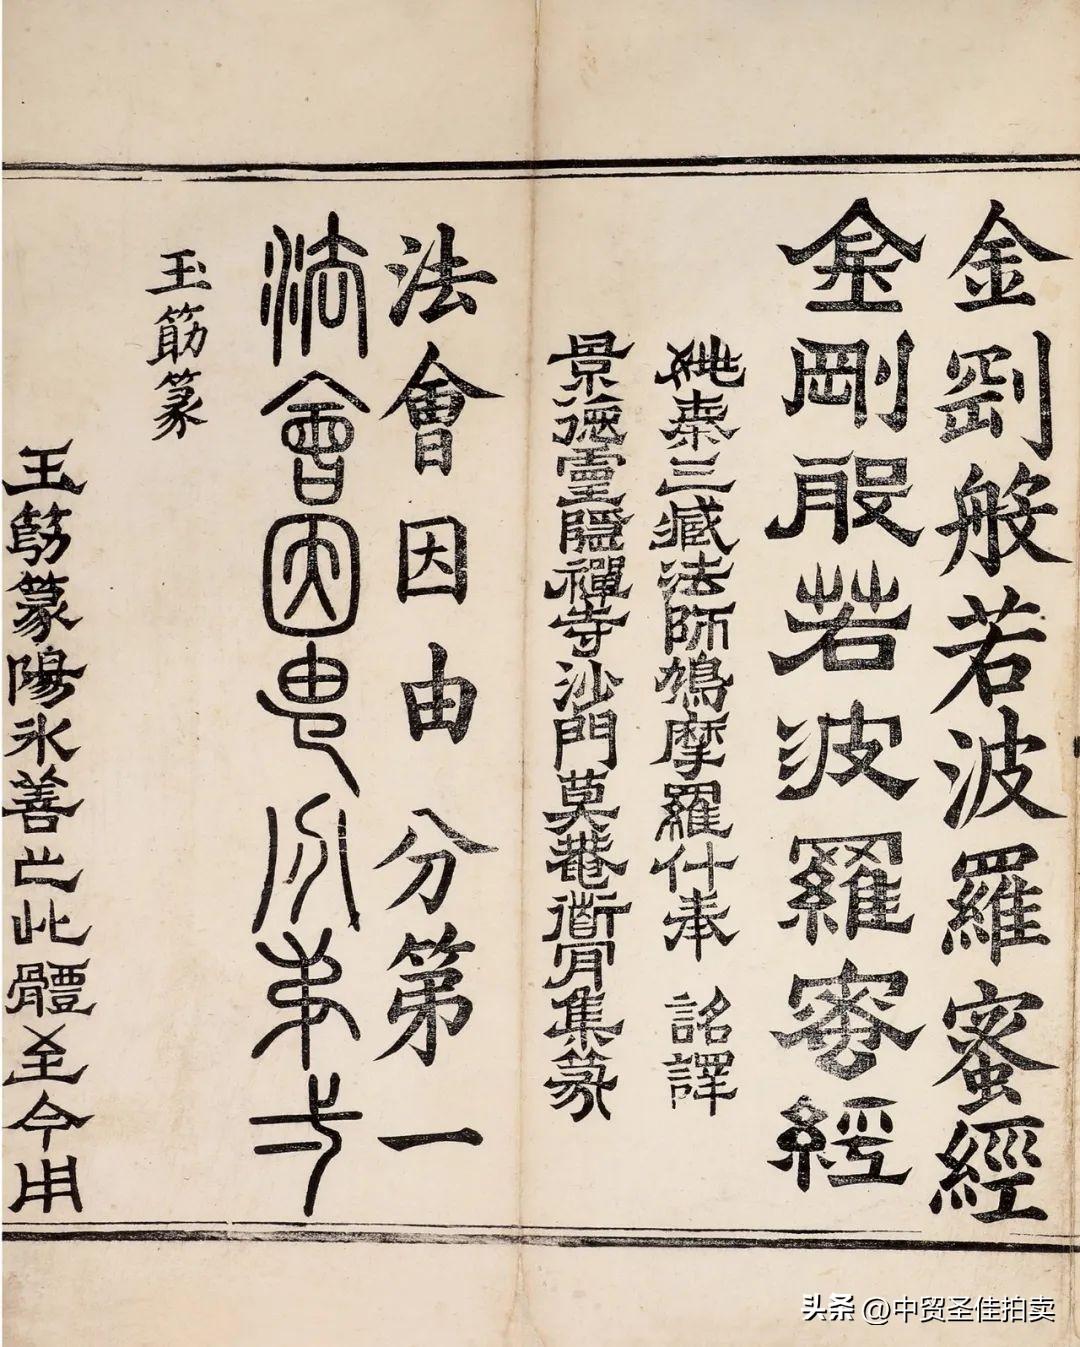 金剛般若波羅蜜經
金剛般若波羅蜜經
姚秦三藏法師鳩摩羅什奉 詔譯
景德靈隱禪寺沙門莫菴道肯集篆
法會因由分第一
法會因由分弟一
玉筯篆
玉筯篆陽冰善之此體至今用
头条 @中贸圣佳拍卖